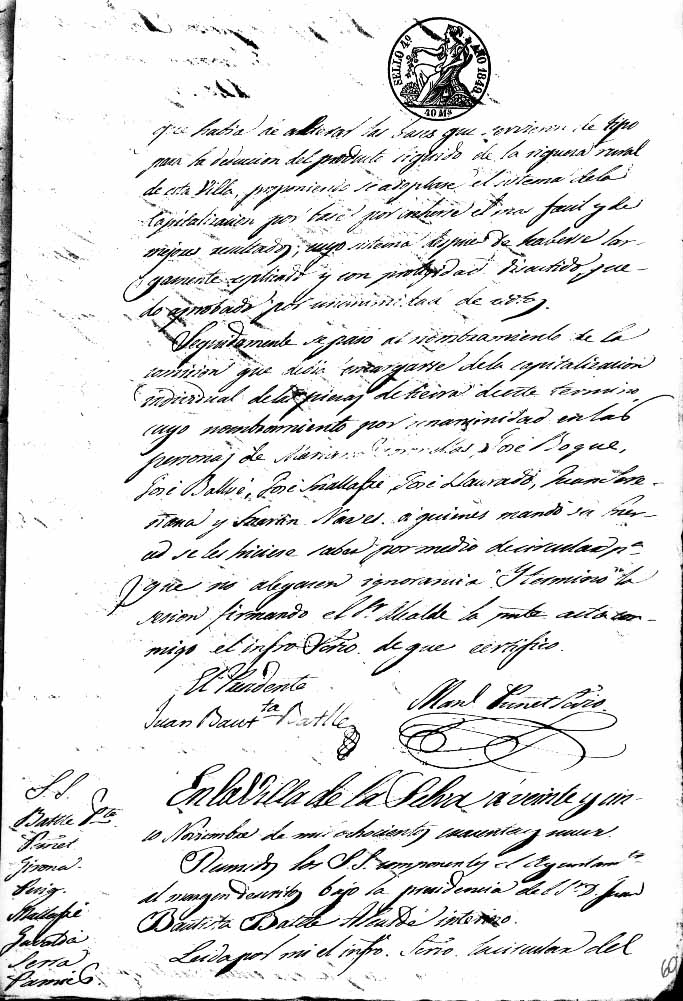 SELLO 4º AÑO 1849.
40 Ms
que habia de las bases que sirvieron de tipo
para la deducion del producto liquido de la riqueza rural
de esta Villa, proponiendo se adoptare el sistema de la
capitalizacion por base por inherse el mas facil y de
mejores resultados, cuyo sistema despues de haberse lar-
gamente esplicado y con prolijidad discutido, que-
do aprobado por unanimidad de votos.
Seguidamente se paso al nombramiento de la
comision que debia encargarse de la capitalizacion
individual de las piezas de tierra de este termino
cuyo nombramiento por unanimidad en las
personas de José Boque,
José Ballvé, José Mallafré, José Llauradó, Juan
y Navés. a quienes mandó su
se les hiciese saber por medio de circular pª
que no aleguen ignorancia. Y terminó la
sesion firmando el Sr Alcalde la pnte acta con-
migo el infro Srio. de que certifico.
El Presidente
Juan Bautta Batlle
Manl Puñet Srio
S. S.
Batlle Pte
Puñet
Girona
Puig
Mallafré
Gavaldá
Serra
Pamies
En la Villa de la Selva á veinte y cin-
co Noviembre de mil ochocientos cuarenta y nueve.
Reunidos los S.S. componentes el Ayuntamto
al margen descritos bajo la presidencia del Sr D. Juan
Bautista Batlle Alcalde interino.
Leida por mi el infro. Srio. la circular del
60